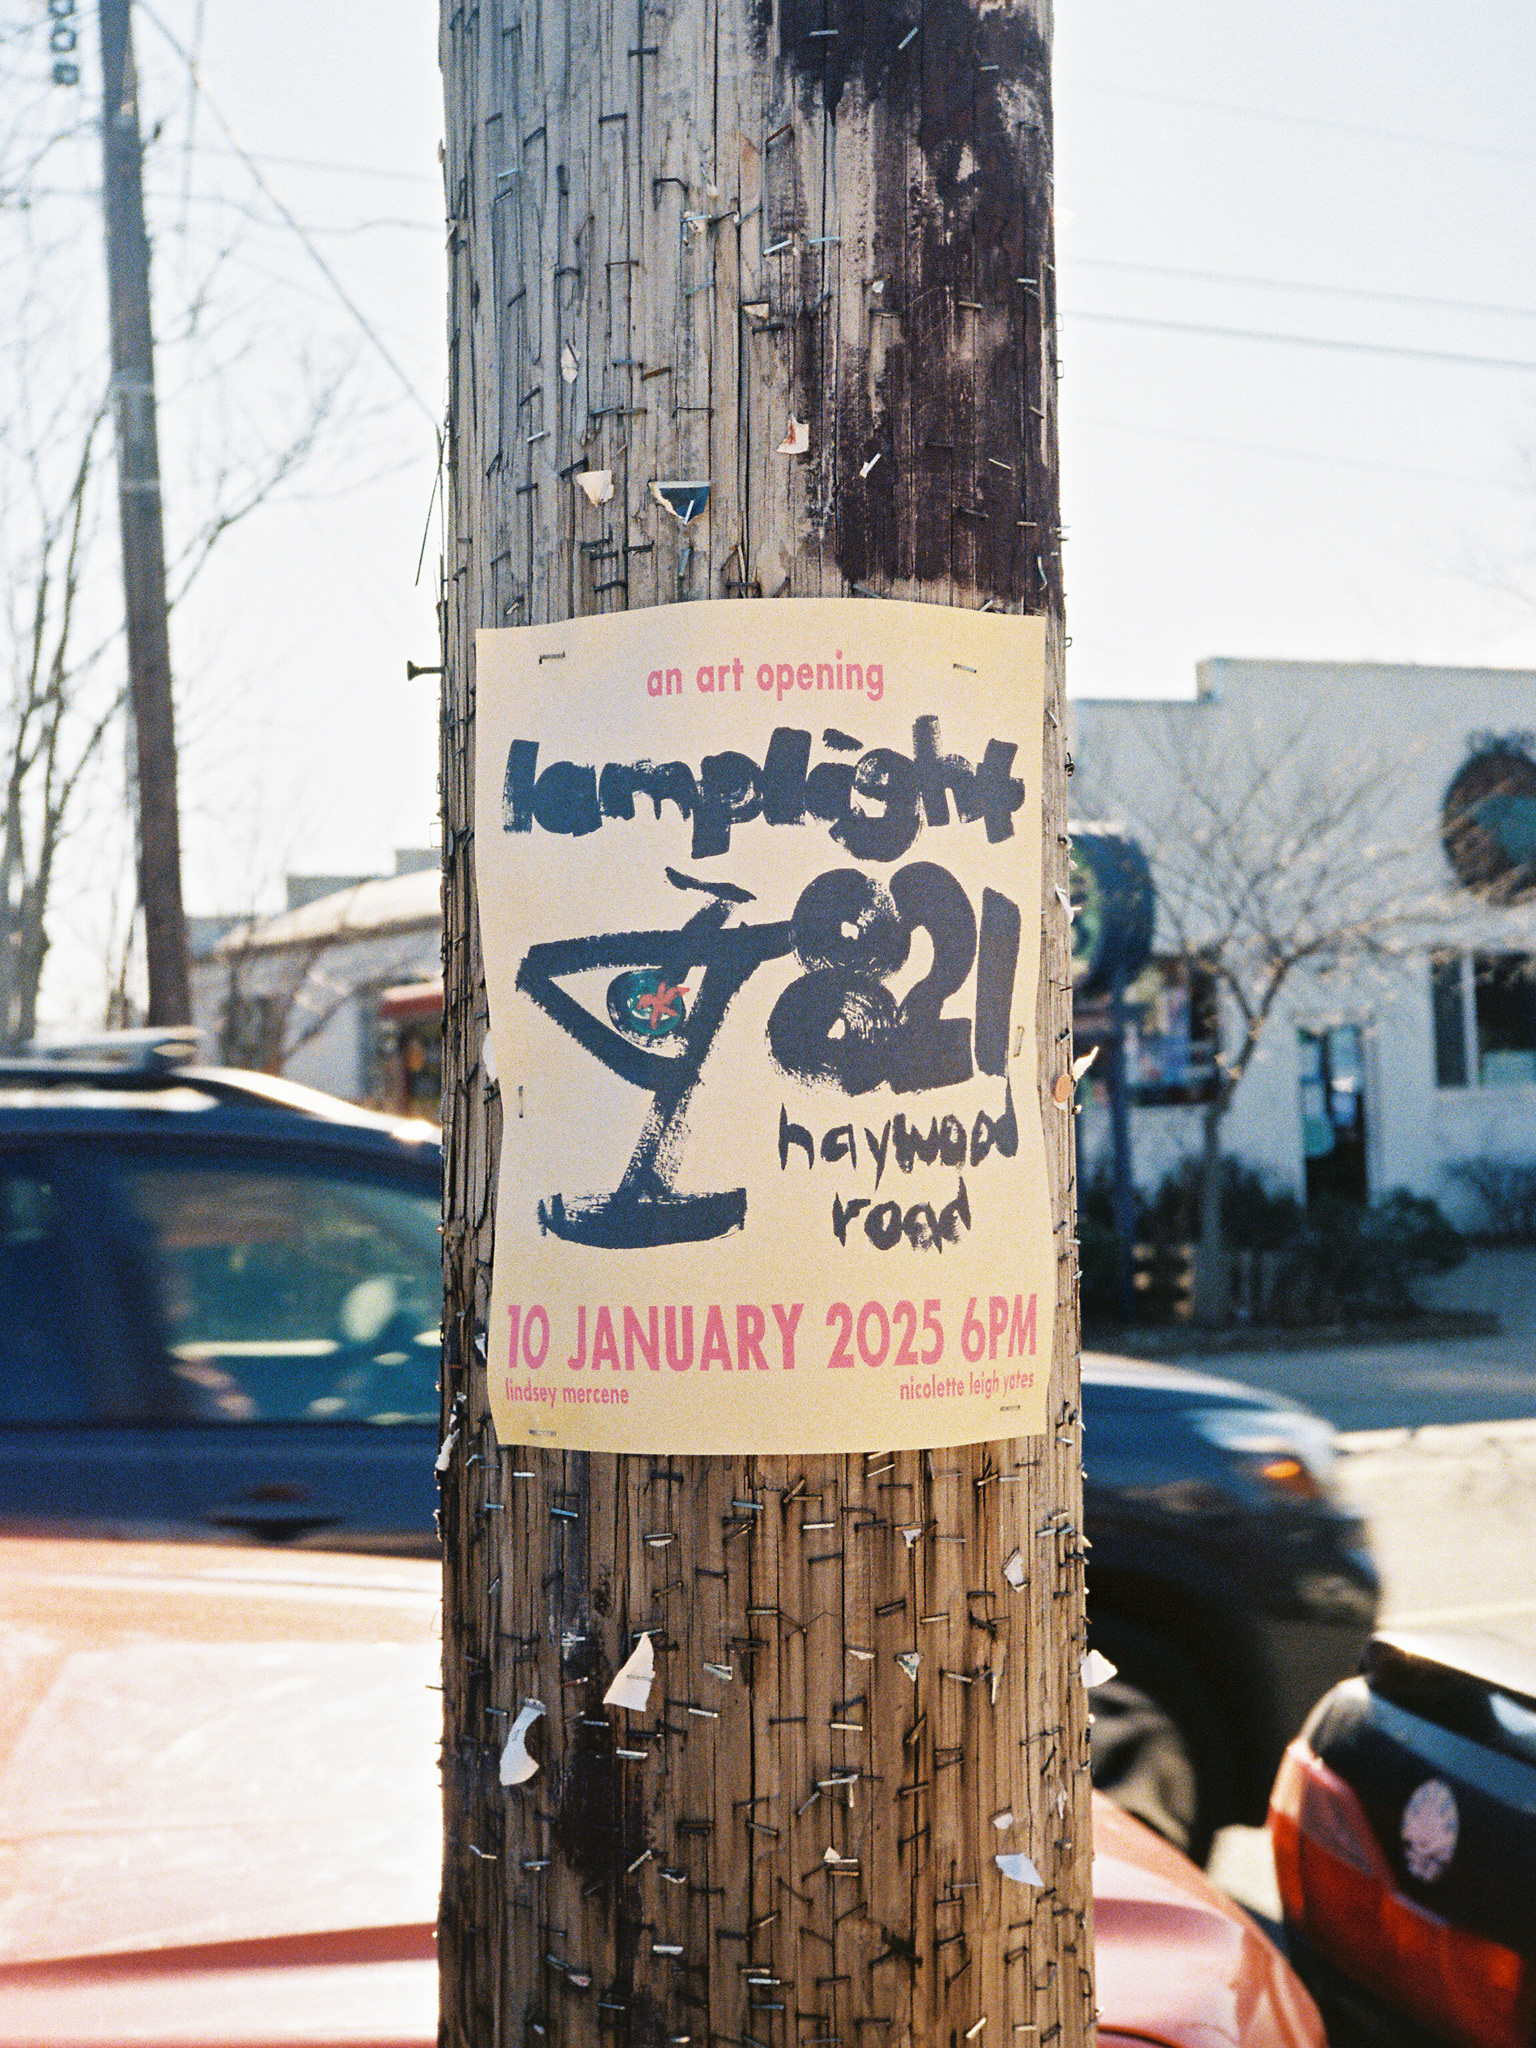 an art opening
lamplight
821
haywood
road
10 JANUARY 2025 6PM
lindsey mercene
nicolette leigh yates